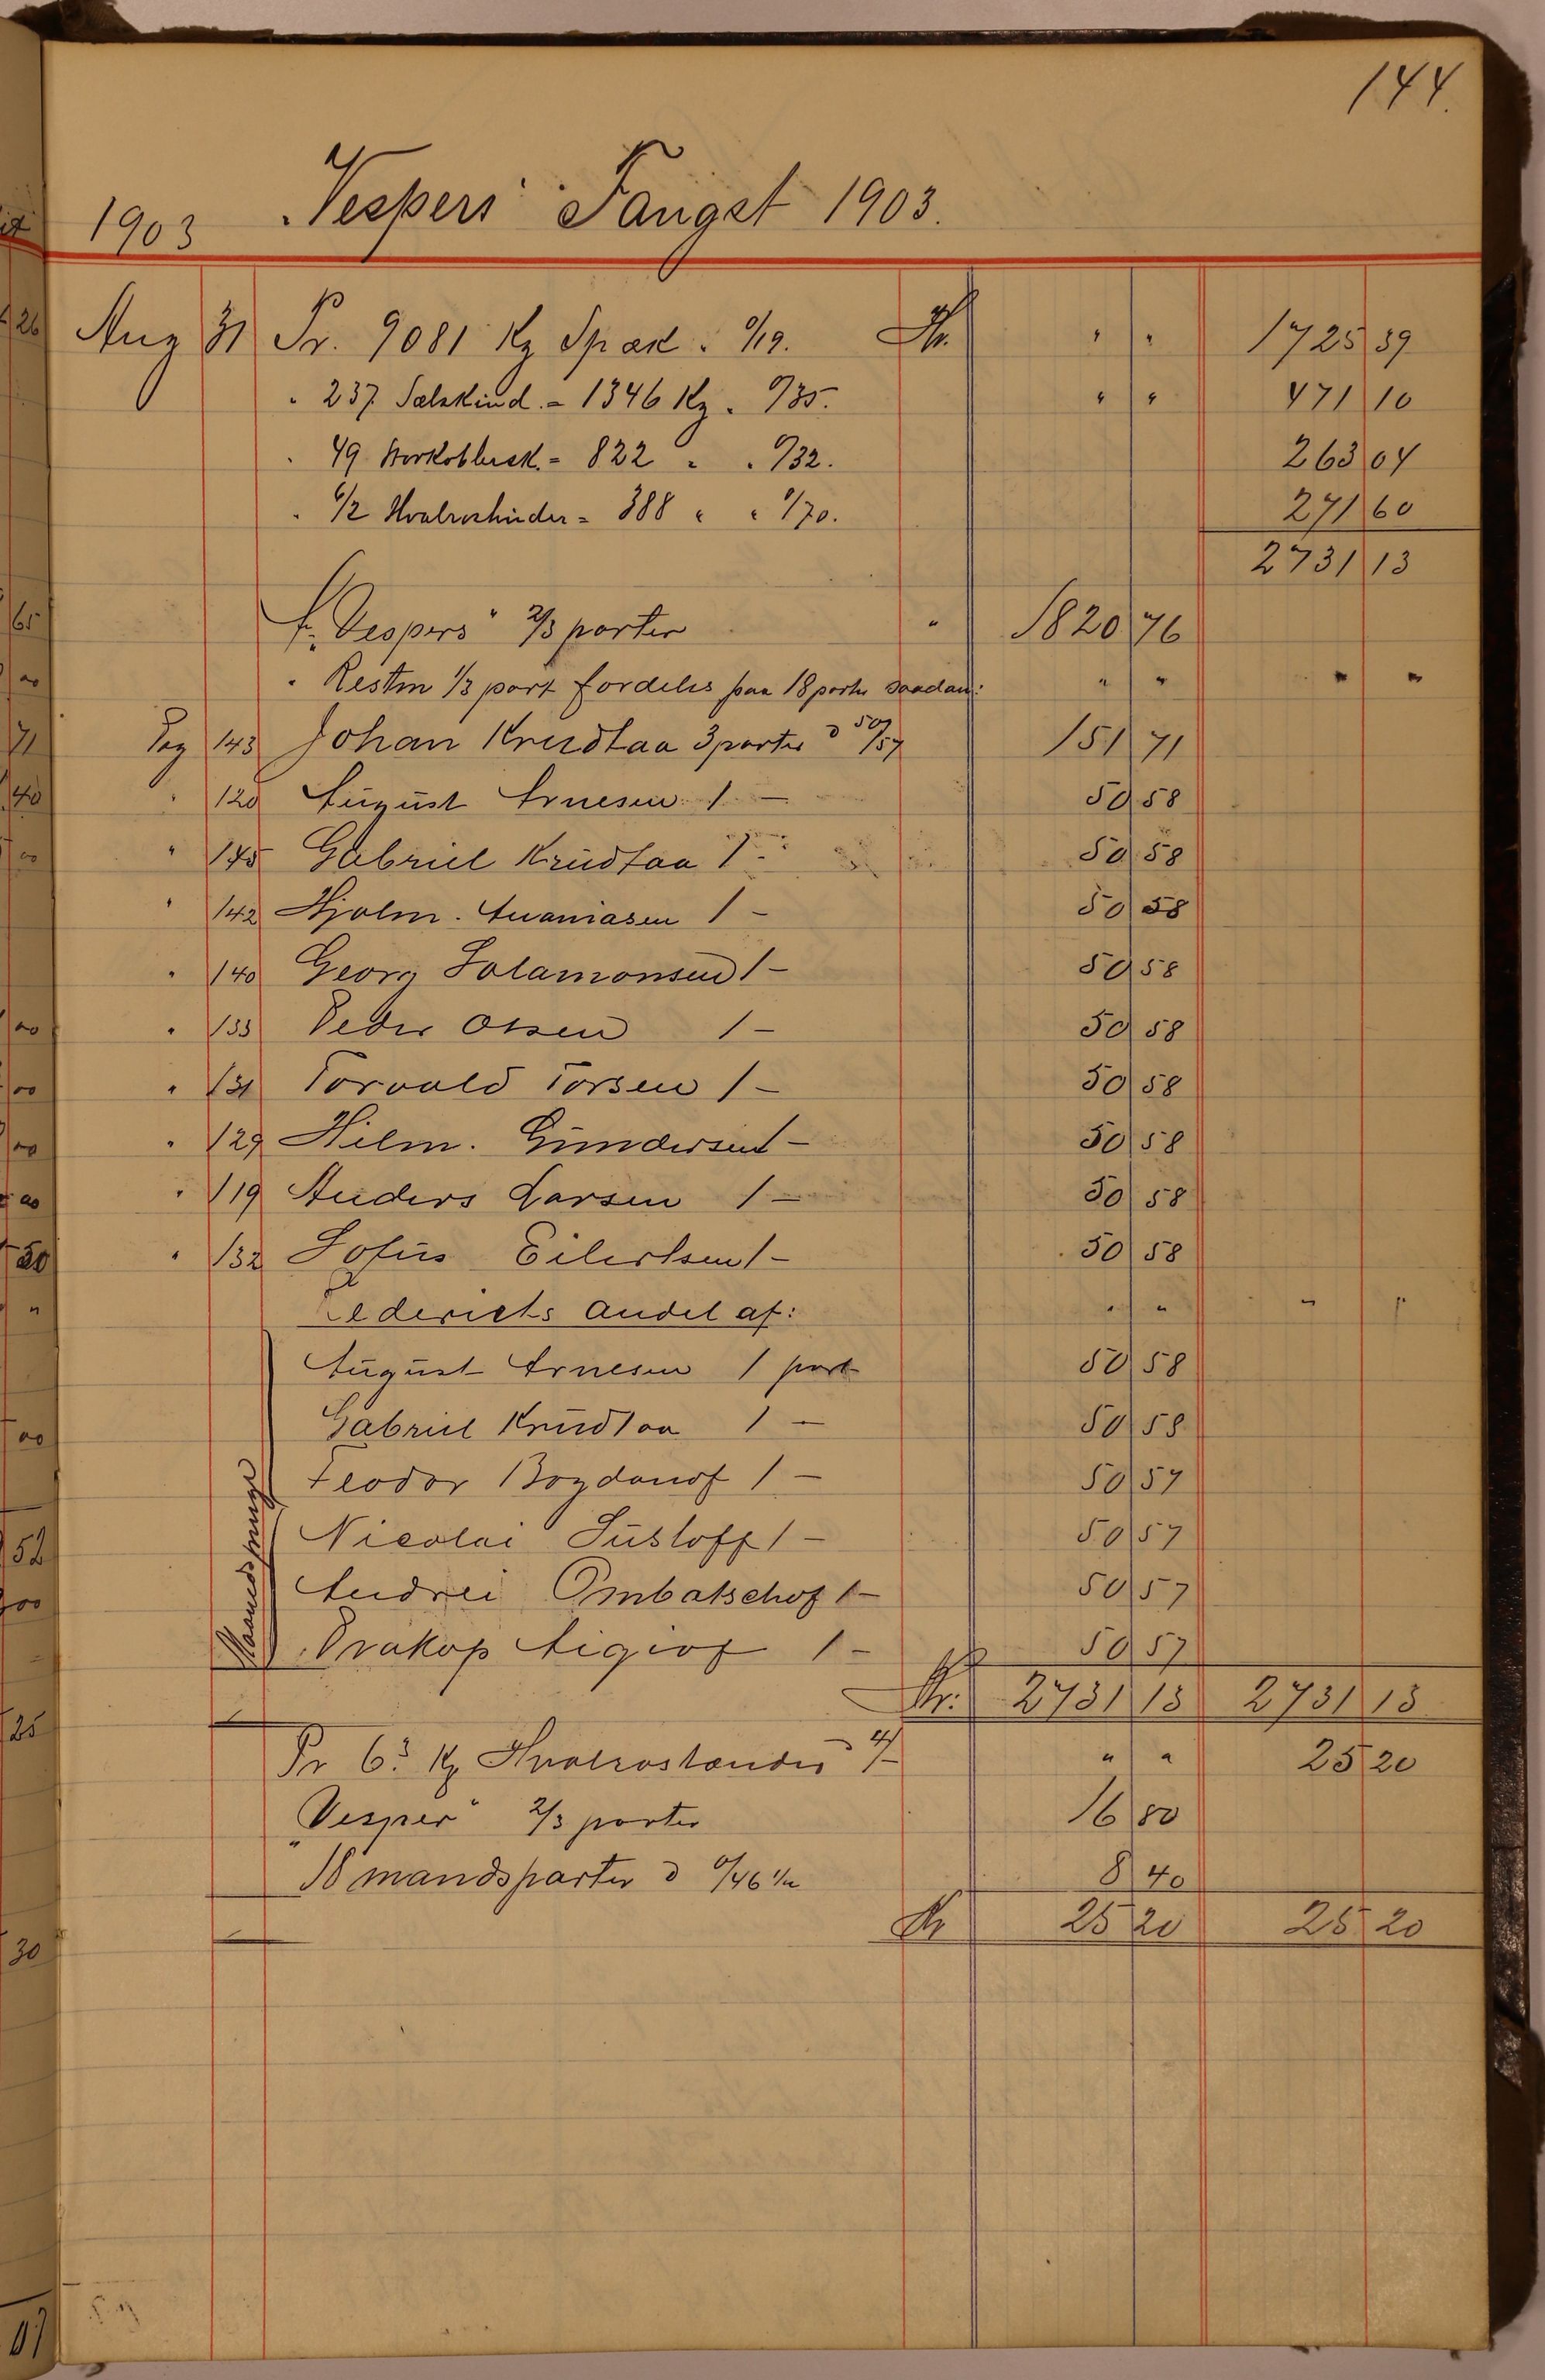 144.
1903 "Vespers" Fangst 1903.
Aug 31 Pr. 9081 Kg Spæk " 0/19. Kr. " " 1725 39
" 237 Sælskind. = 1346 Kg. " 0/35. " " 471 10
" 49 Storkobbesk. = 822 " " 0/32. 263 04
" 6/2 Hvalroshuder = 388 " " 0/70. 271 60
2731 13
f. "Vespers" 2/3 parter " 1820 76
" Resten 1/3 part fordeles paa 18 parter saadan: " " " "
Pag 143 Johan Krudtaa 3 parter à 50/57 151 71
" 120 August Arnesen 1 — 50 58
" 145 Gabriel Krudtaa 1 - 50 58
" 142 Hjalm. Ananiasen 1 - 50 58
" 140 Georg Salamonsen 1 - 50 58
" 133 Peder Olsen 1 - 50 58
" 131 Torvald Torsen 1 - 50 58
" 129 Hilm. Gundersen 1 - 50 58
" 119 Anders Larsen 1 - 50 58
" 132 Sofus Eilertsen 1 - 50 58
Rederiets andel af: " " " "
August Arnesen 1 part 50 58
Gabriel Krudtaa 1 — 50 58
Feodor Bogdanof 1 — 50 57
Nicolai Susloff 1 - 50 57
Andrei Ombatschof 1 - 50 57
Prakop 1 - 50 57
Kr: 2731 13 2731 13
Pr 6.3 Kg Hvalrostænder à 4/- " " 25 20
"Vesper" 2/3 parter 16 80
18 mandsparter à 0/46 8 40
Kr 25 20 25 20